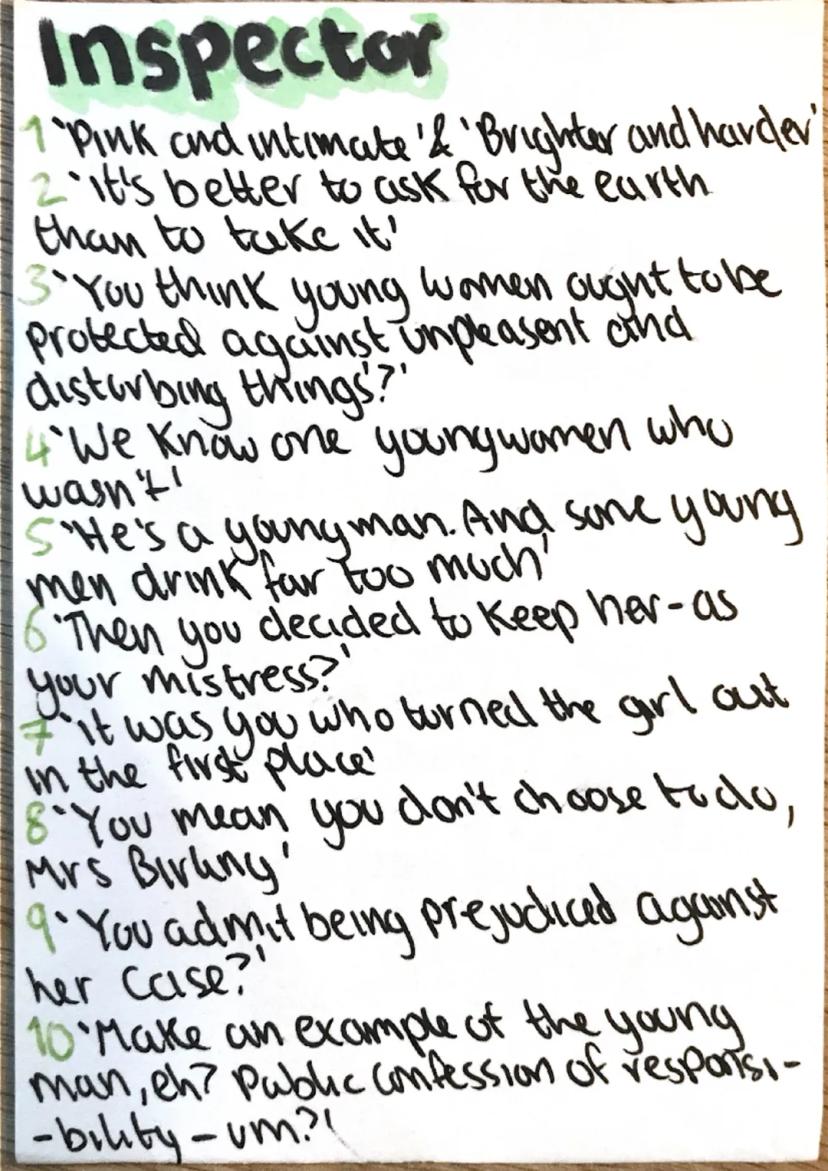 Inspector
1 'Pink and intimate' & 'Brighter and harder'
2 'it's better to ask for the earth
than to take it'
3 'You think young women ought to be
protected against unpleasent and
disturbing things?'
4 'We know one youngwomen who
wasn't'
5 'He's a young man. And some young
men drink far too much'
6 'Then you decided to keep her - as
your mistress?'
7 'it was you who turned the girl out
in the first place'
8 'You mean you don't choose to do,
Mrs Birling'
9 'You admit being prejudiced against
her case?'
10 'Make an example of the young
man, eh? Public confession of responsi-
-bility - um?'